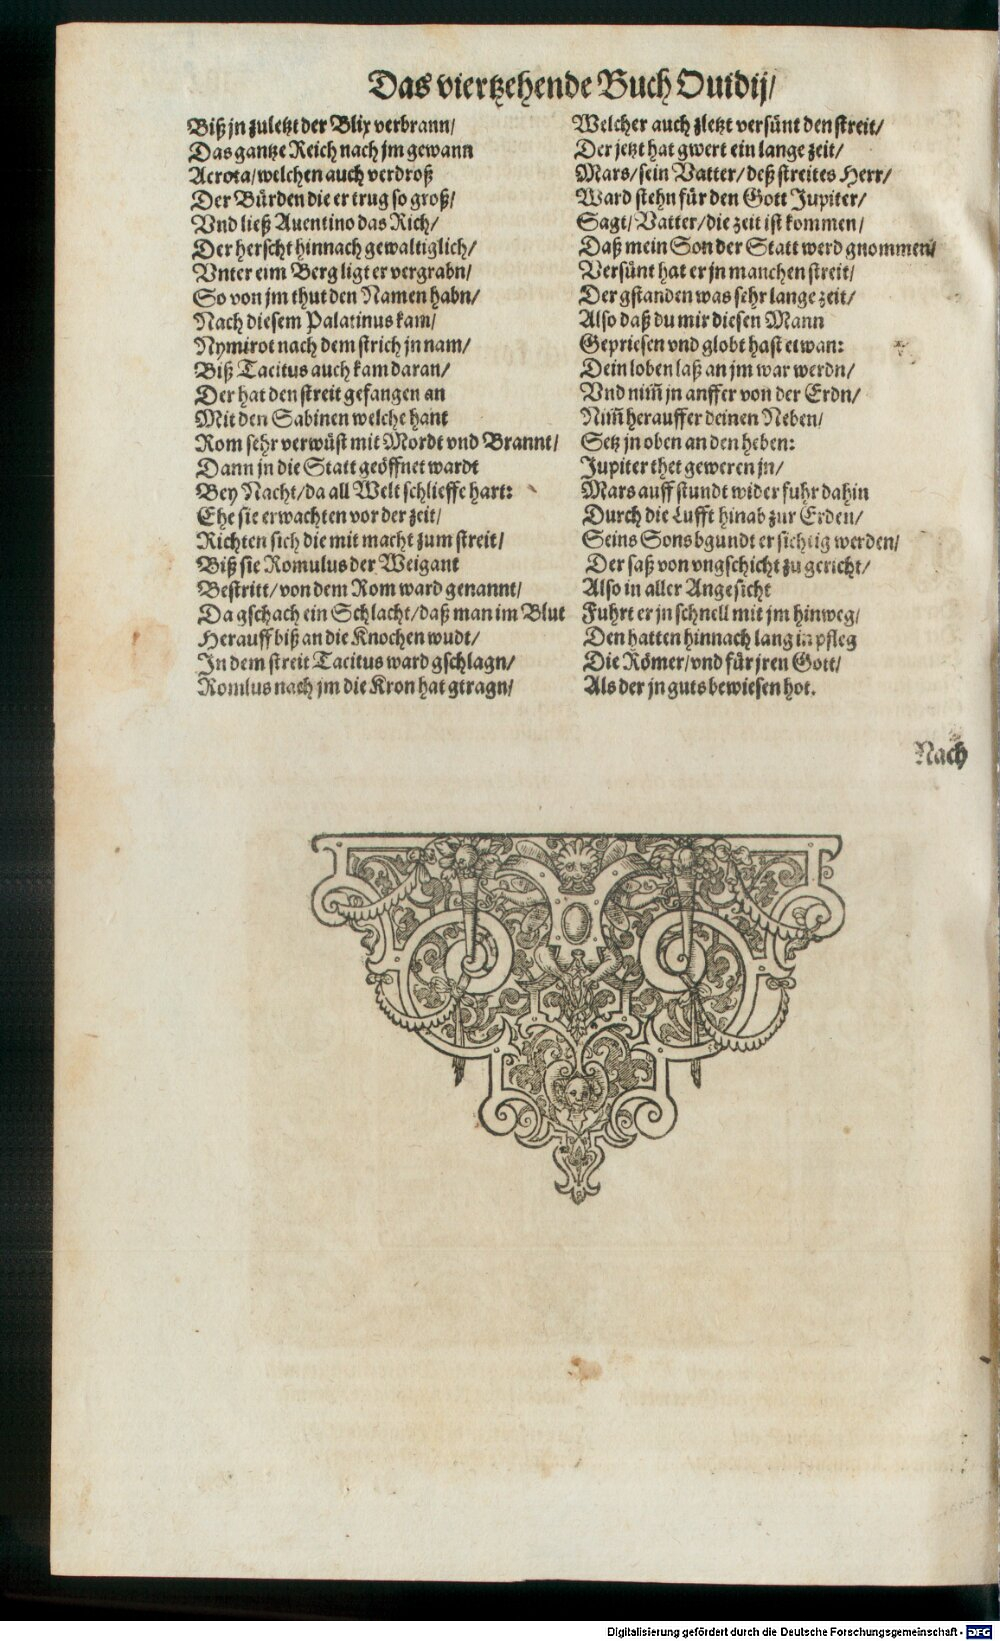 Das viertzehende Buch Ouidij/
Biß jn zuletzt der Blix verbrann/
Das gantze Reich nach jm gewann
Acrota/welchen auch verdroß
Der Bürden die er trug so groß/
Vnd ließ Auentino das Rich/
Der herscht hinnach gewaltiglich/
Vnter eim Berg ligt er vergrabn/
So von jm thut den Namen habn/
Nach diesem Palatinus kam/
Nymirot nach dem strich jn nam/
Biß Tacitus auch kam daran/
Der hat den streit gefangen an
Mit den Sabinen welche hant
Rom sehr verwüst mit Mordt vnd Brannt/
Dann jn die Statt geöffnet wardt
Bey Nacht/da all Welt schlieffe hart:
Ehe sie erwachten vor der zeit/
Richten sich die mit macht zum streit/
Biß sie Romulus der Weigant
Bestritt/von dem Rom ward genannt/
Da gschach ein Schlacht/daß man im Blut
Herauff biß an die Knochen wudt/
In dem streit Tacitus ward gschlagn/
Romlus nach jm die Kron hat gtragn/
Welcher auch zletzt versünt den streit/
Der jetzt hat gwert ein lange zeit/
Mars/sein Vatter/deß streites Herr/
Ward stehn für den Gott Jupiter/
Sagt/Vatter/die zeit ist kommen/
Daß mein Son der Statt werd gnommen/
Versünt hat er jn manchen streit/
Der gstanden was sehr lange zeit/
Also daß du mir diesen Mann
Gepriesen vnd globt hast etwan:
Dein loben laß an jm war werdn/
Vnd nim̃ jn auffer von der Erdn/
Nim̃ herauffer deinen Neben/
Setz jn oben an den heben:
Jupiter thet geweren jn/
Mars auff stundt wider fuhr dahin
Durch die Lufft hinab zur Erden/
Seins Sons bgundt er sichtig werden/
Der saß von vngschicht zu gericht/
Also in aller Angesicht
Fuhrt er jn schnell mit jm hinweg/
Den hatten hinnach lang in pfleg
Die Römer/vnd für jren Gott/
Als der jn guts bewiesen hot.
Nach
Digitalisierung gefördert durch die Deutsche Forschungsgemeinschaft - DFG